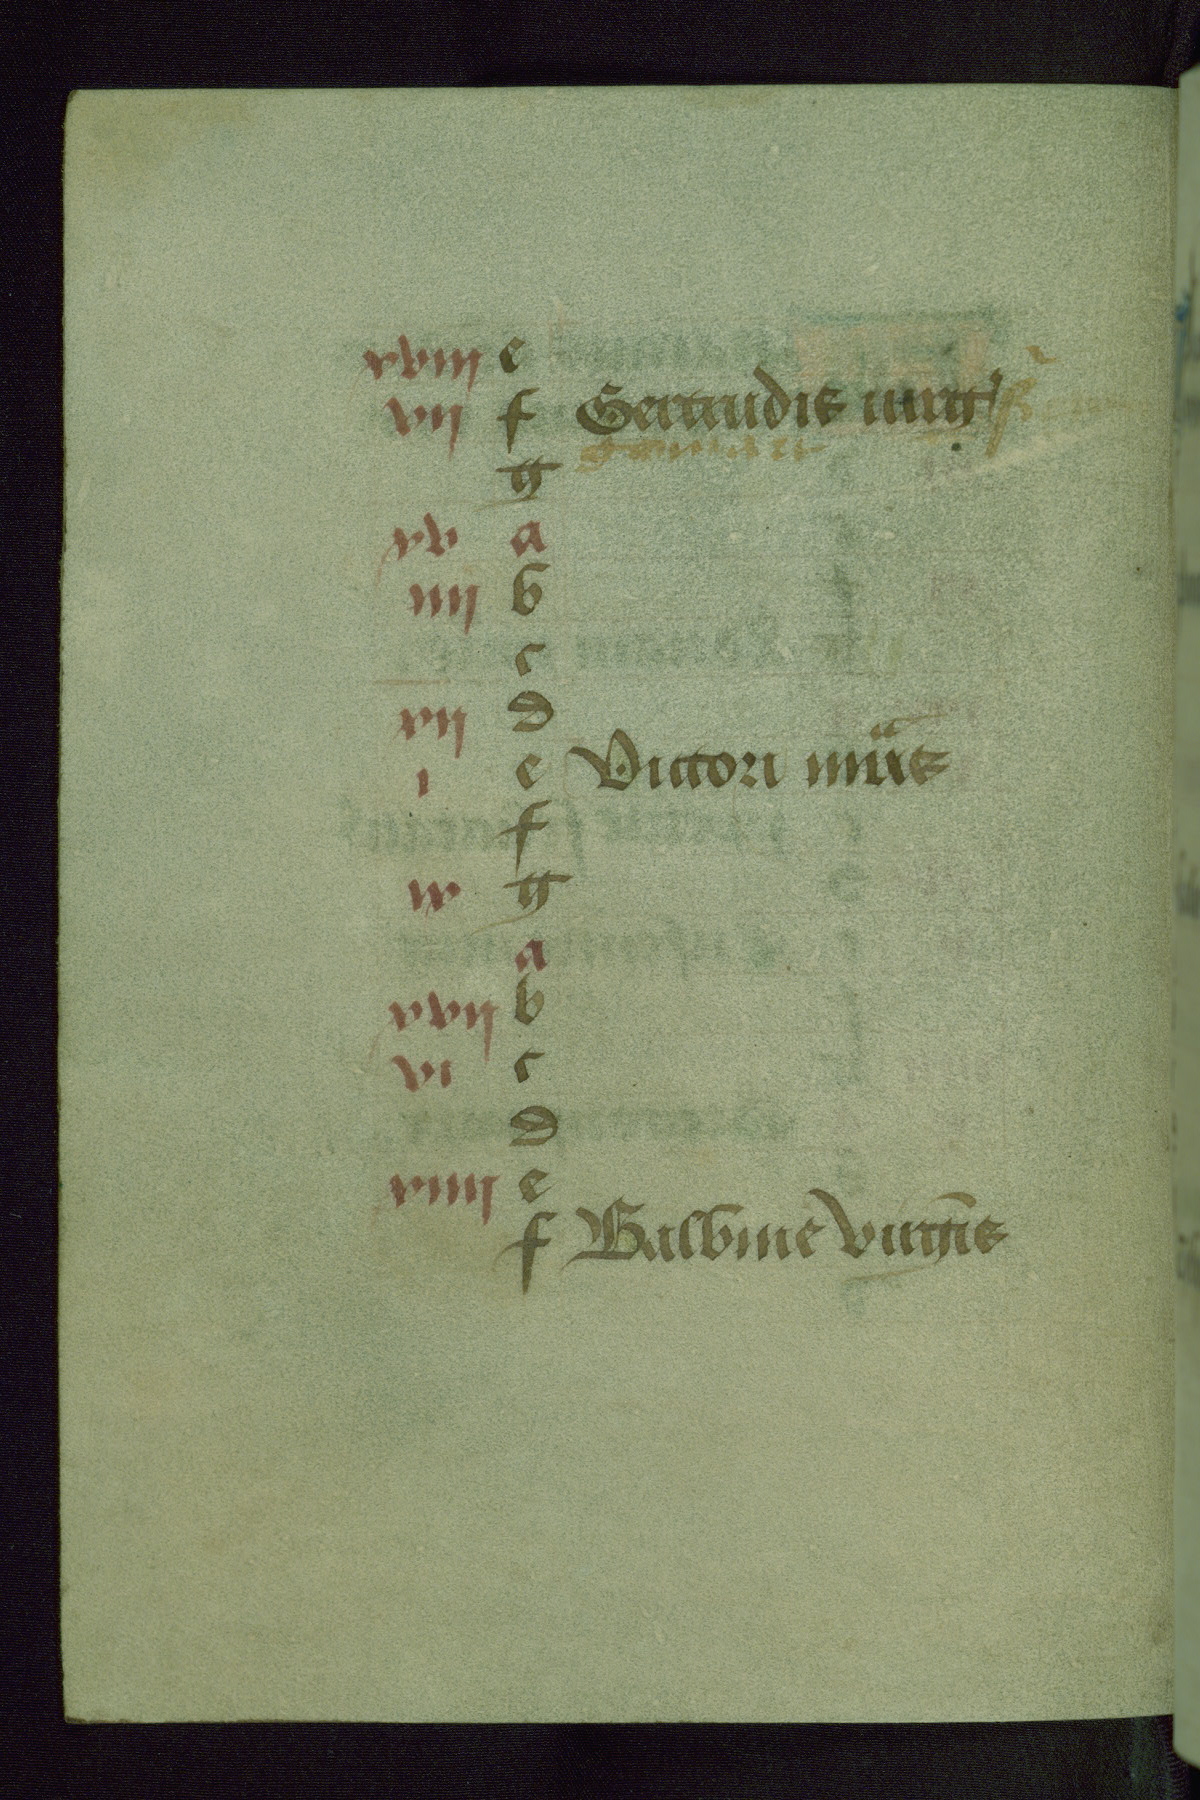 xviii e
vii f Gertrudis uirg
g
xv a
iiii b
c
xii d
i e Victori mr̄is
f
ix g
a
xvii b
vi c
d
xiiii e
f Balbine virgīs